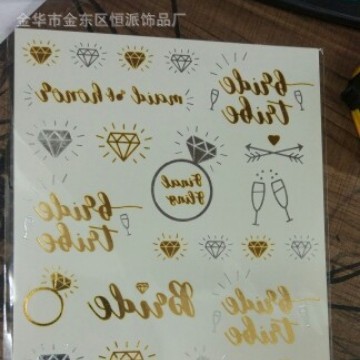 金华市金东区恒派饰品厂
bride
tribe
maid of honor
Final
Fling
bride
tribe
Bride
bride
tribe